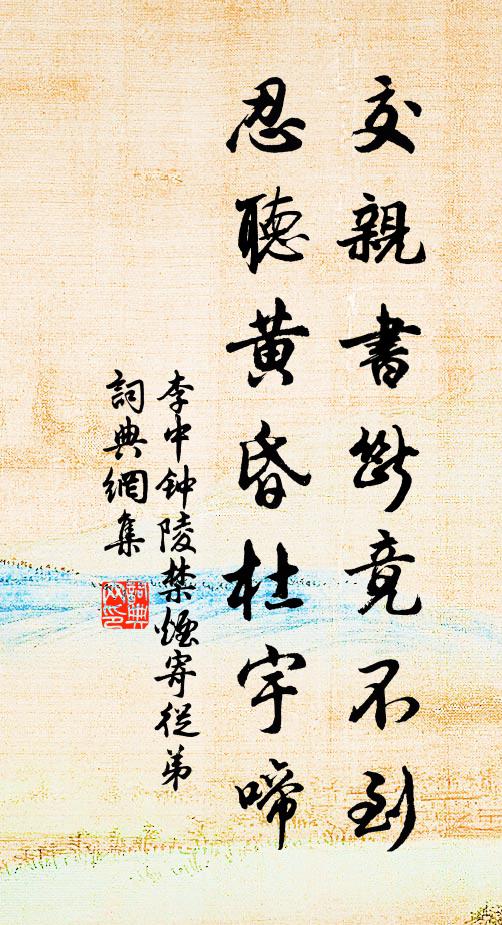 交親書斷竟不到
忍聽黃昏杜宇啼
李中钟陵禁煙寄從弟
詞典網集